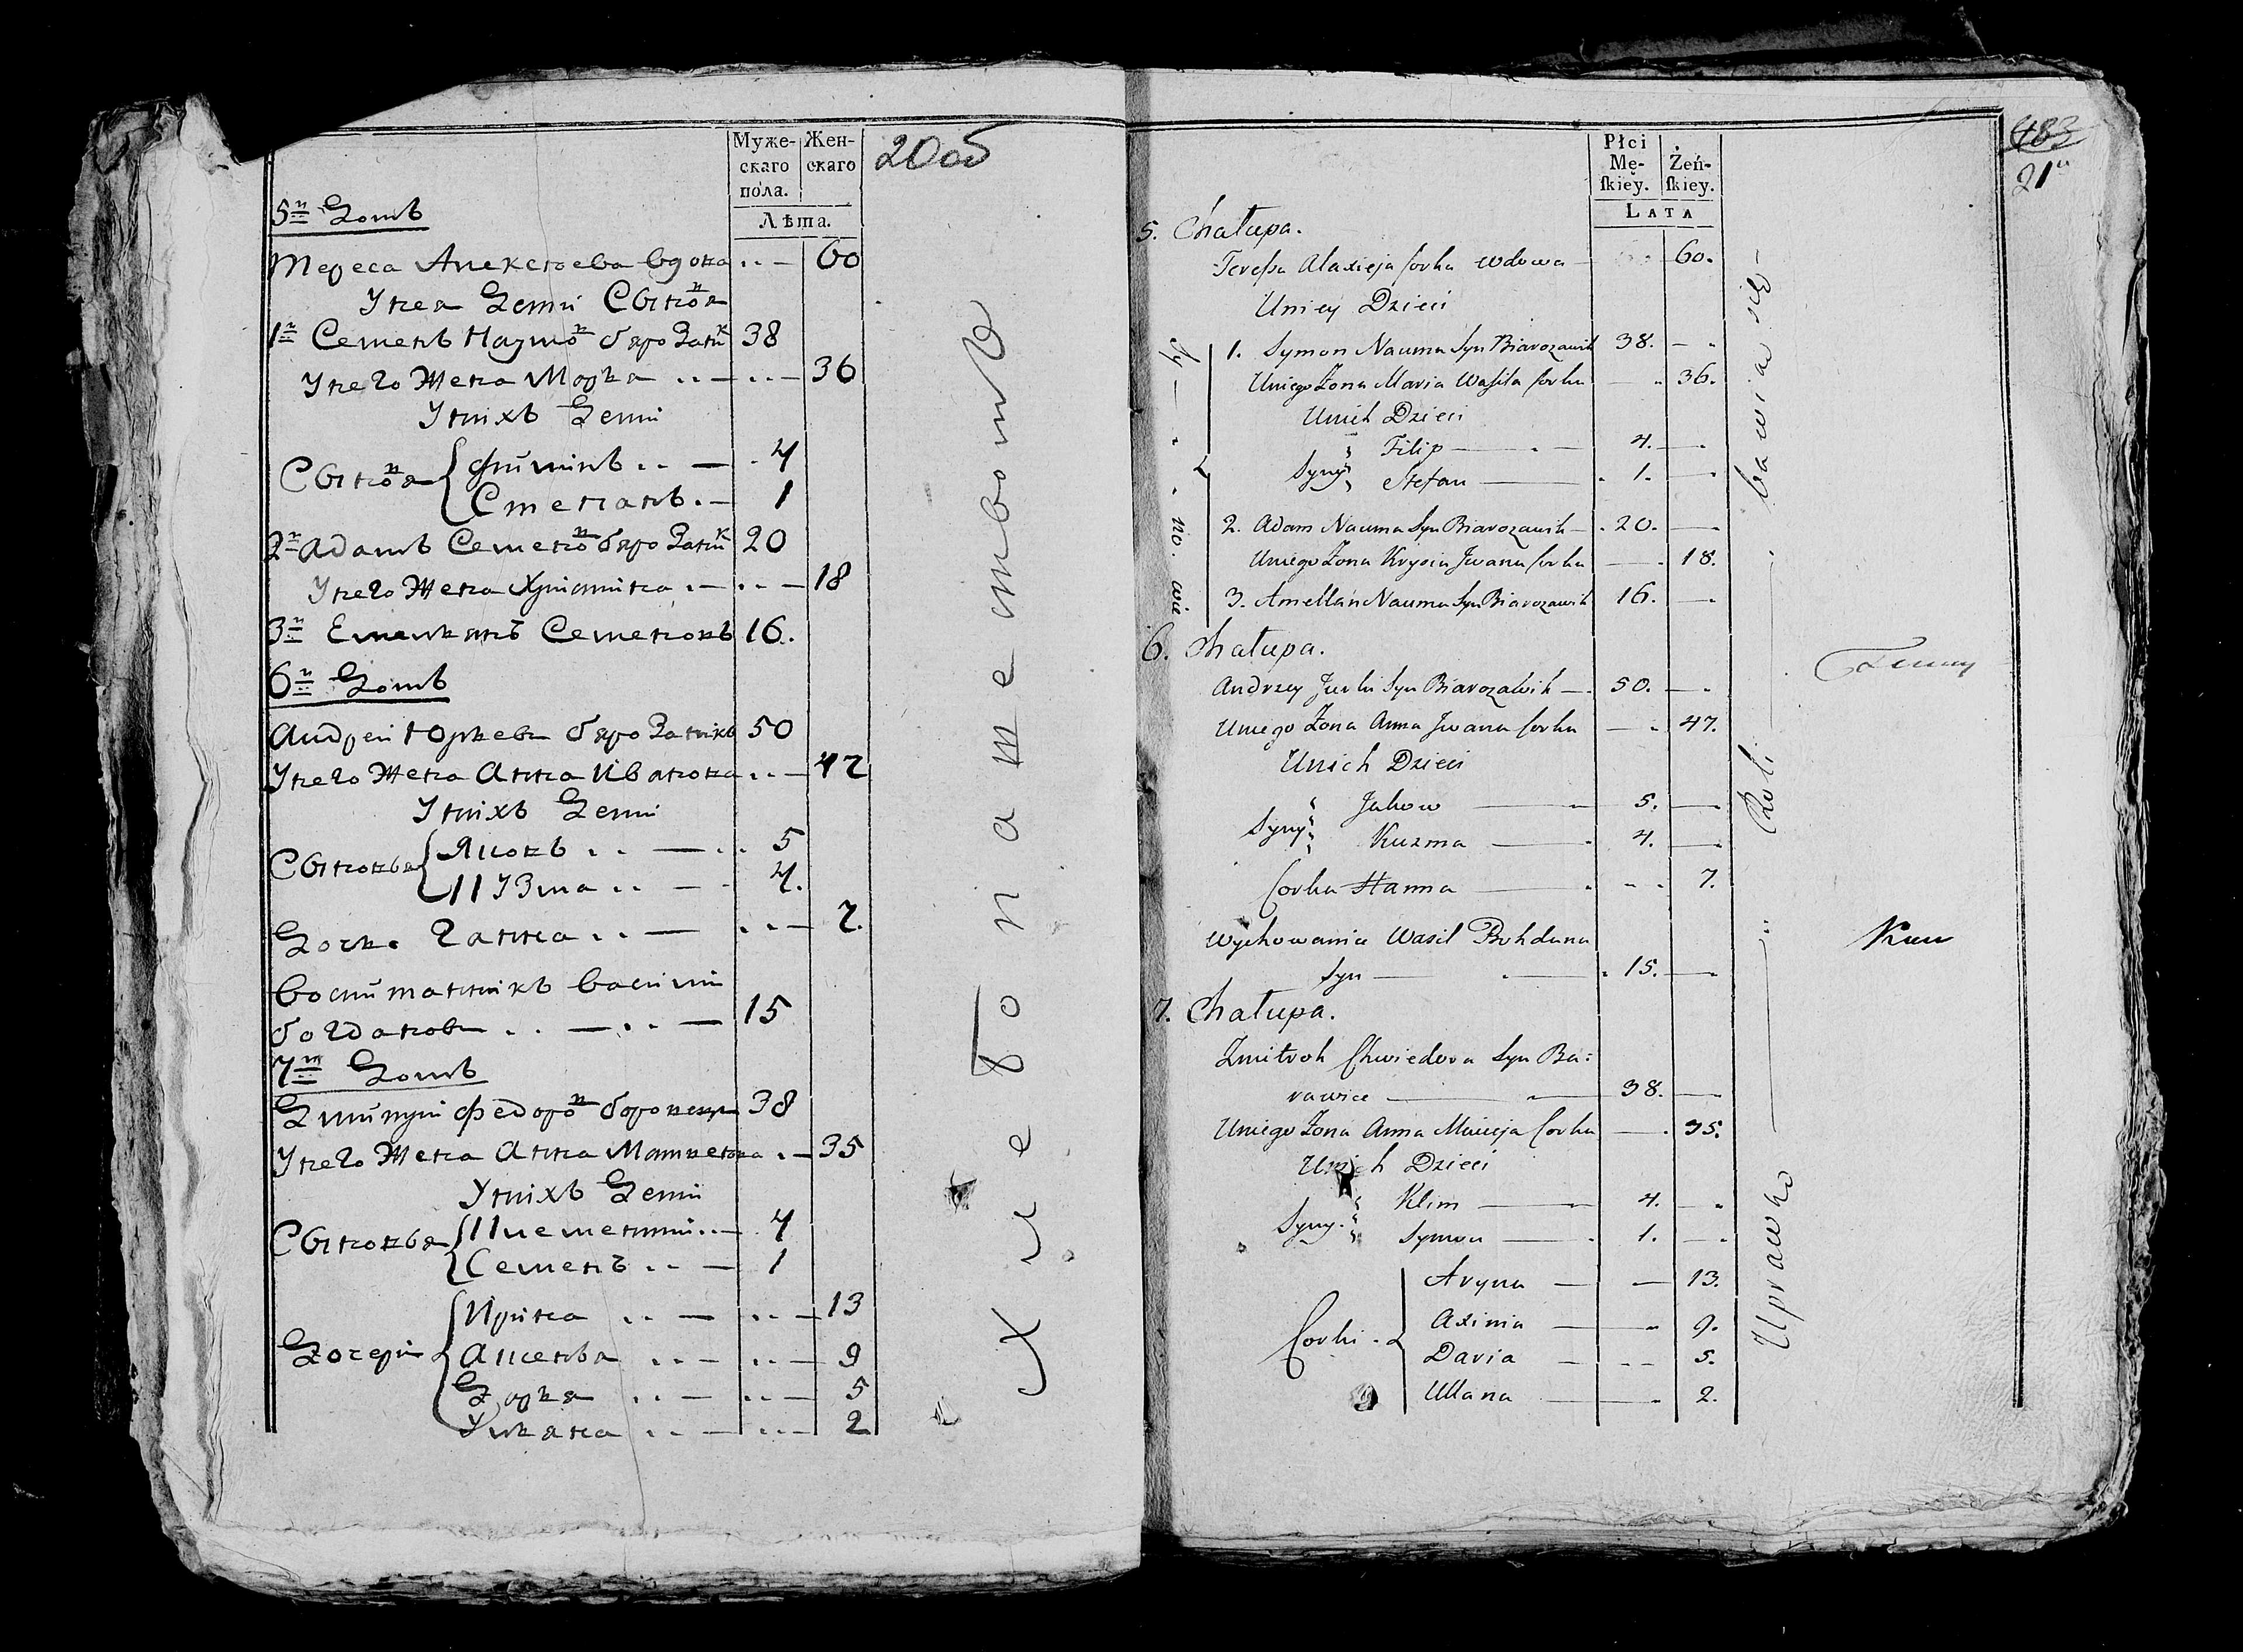 Муже-
скаго
пола.
Жен-
скаго
20об
Лѣта.
5й Домъ
Тереса Алексѣева вдова .. — 60
У нея Дети Сыновя
1й Семенъ Наумов 38
У него Жена Марья .. — 36
У нихъ Дети
Сыновя Филипъ .. — 4
Степанъ . — 1
2й Адамъ Семенов 20
У него Жена Христина . — 18
3й Емельянъ Семеновъ 16.
6й Домъ
Андрей Юрьевъ 50
У него Жена Анна Иванова .. — 47
У нихъ Дети
Сыновья Яковъ .. — 5
Кузма .. — 4.
Дочь. Ганна .. — 7.
Воспитанникъ Василий
Богдановъ .. — .. — 15
7й Домъ
Дмитрий Федоров 38
У него Жена Анна Матвеева . — 35
У нихъ Дети
Сыновья Клементий .. — 4
Семенъ .. — 1
Дочери Ирина .. — 13
Аксенья .. — 9
Дарья .. — 5
Ульяна .. — 2
Хлебопашество
Płci
Mę-
skiey.
Żeń-
skiey.
LATA
483
21
5. Chałupa.
Teressa Alaxieja Corka wdowa — 60.
Uniey Dzieci
1. Symon Nauma Syn Biarozawik 38. —
Uniego Żona Maria Wasila Corka — 36.
Unich Dzieci
Syny Filip — 4. —
Stefan — 1. —
2. Adam Nauma Syn Biarozawik — 20. —
Uniego Żona Krysia Jwana Corka — 18.
3. Amellan Nauma Syn Biarozawik 16. —
Sy — no. wie
6. Chałupa.
Andrzey Jurki Syn Biarozawik — 50. —
Uniego Żona Anna Jwana Corka — 47.
Unich Dzieci
Syny Jakow — 5. —
Kuzma — 4. —
Corka Hanna — 7.
Wychowaniec Wasil Bohdana
Syn — 15. —
7. Chałupa.
Zmitroh Chwiedora Syn Ba=
rawice — 38. —
Uniego Żona Anna Macieja Corka — 35.
Unich Dzieci
Syny. Klim — 4. —
Symon — 1. —
Corki Aryna — 13.
Axinia — 9.
Daria — 5.
Ullana — 2.
Uprawko — Roli — bawia się —